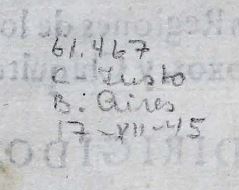 61.467
C. Justo
B: Aires
17-VII-45